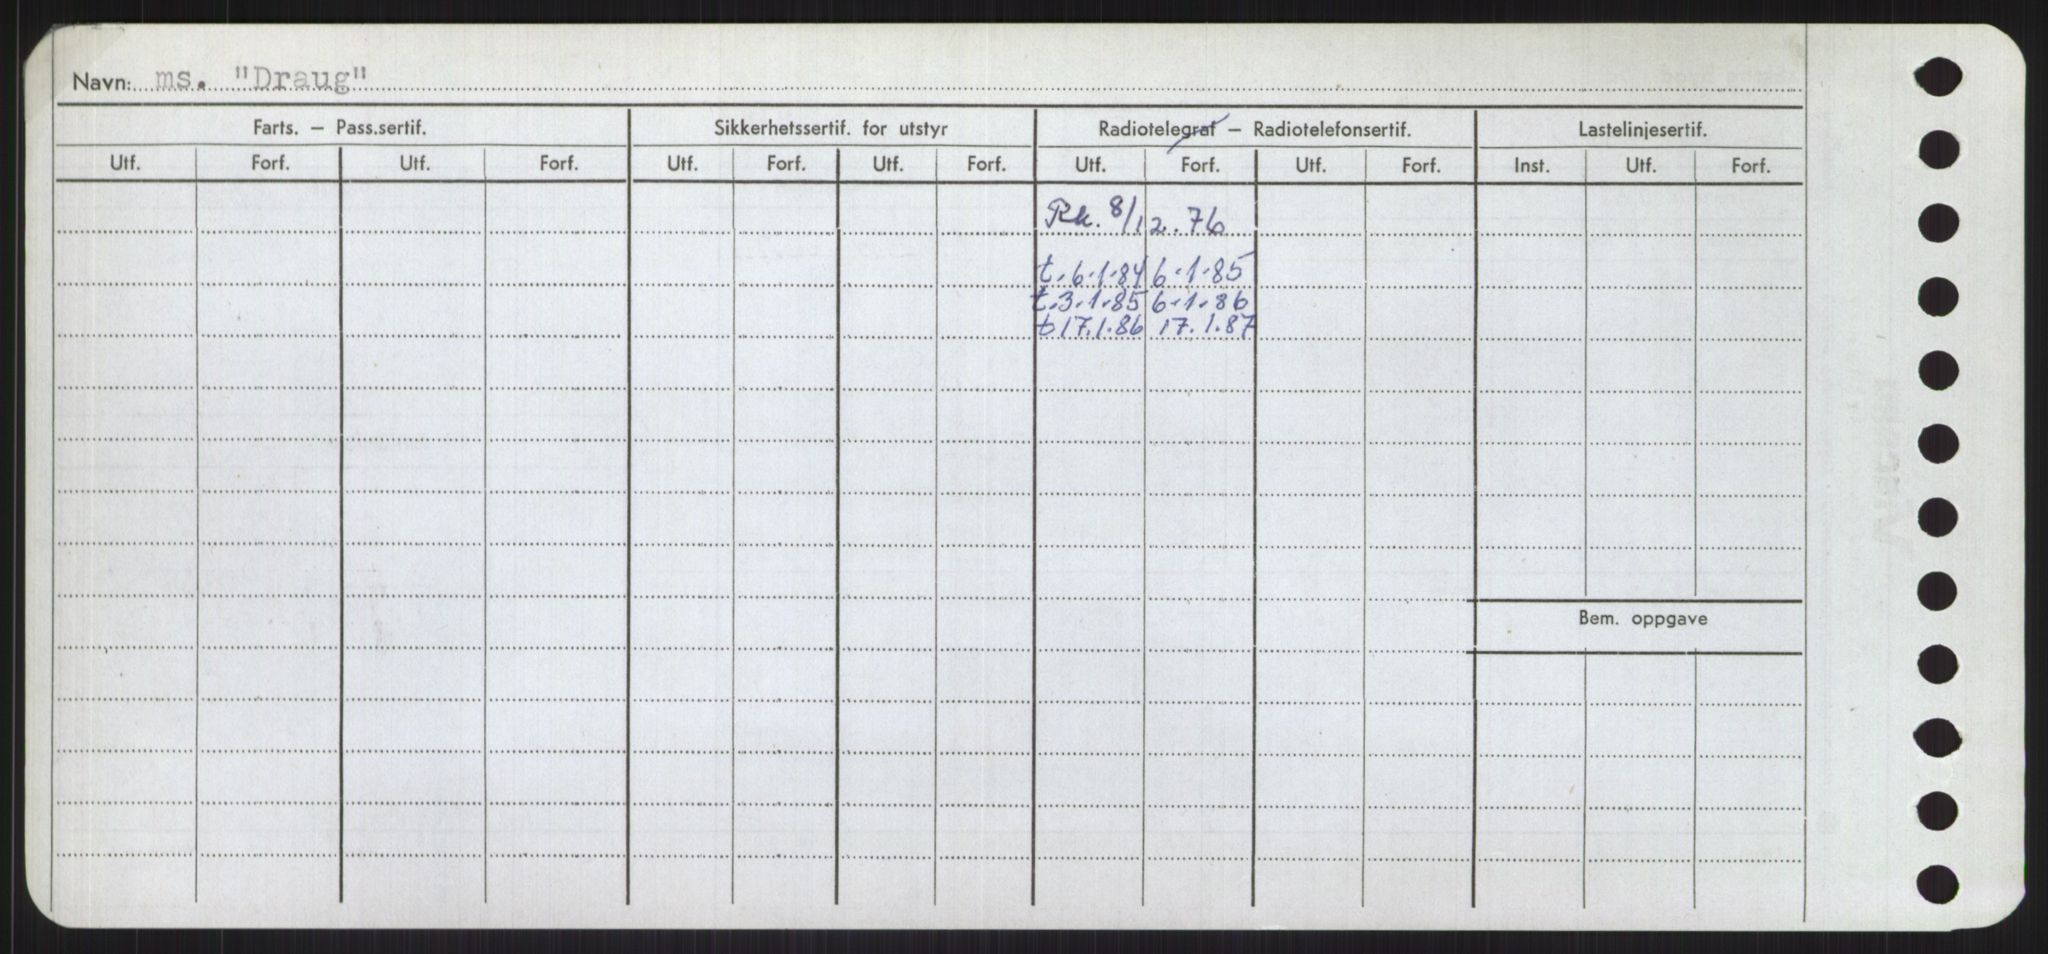 Navn: ms. "Draug"
Farts. – Pass.sertif. Sikkerhetssertif. for utstyr Radiotelegraf – Radiotelefonsertif. Lastelinjesertif.
Utf. Forf. Utf. Forf. Utf. Forf. Utf. Forf. Utf. Forf. Utf. Forf. Inst. Utf. Forf.
Rk. 8/12.76
t.6.1.84 6.1.85
t.3.1.85 6.1.86
t 17.1.86 17.1.87
Bem. oppgave